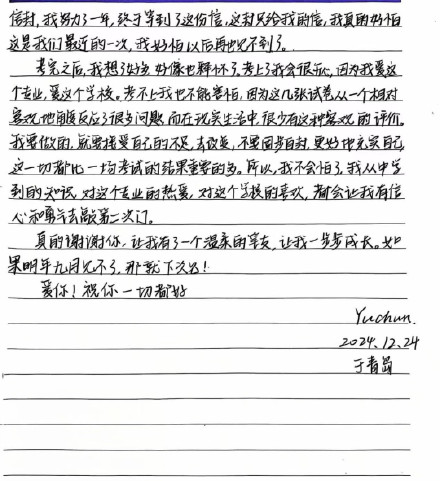 信封，我努力了一年，终于等到了这份信，这封只给我的信，我真的好怕
这是我们最近的一次，我好怕以后再也见不到了。
考完之后，我想了好多，好像也释怀了。考上了我会很开心，因为我爱这
个专业，爱这个学校。考不上我也不能害怕，因为这几张试卷从一个相对
客观地角度反应了很多问题，而在现实生活中，很少有这种客观的评价。
我要做的，就是接受自己的不足，去改变，不要固步自封，更好地充实自己，
这一切都比一场考试的结果重要的多。所以，我不会怕了，我从中学
到的知识，对这个专业的热爱，对这个学校的喜欢，都会让我有信
心和勇气去敲第二次门。
真的谢谢你，让我有了一个温柔的室友，让我一步步成长。如
果明年九月见不了，那就下次见！
爱你！祝你一切都好
Yuchun.
2024.12.24
于青岛